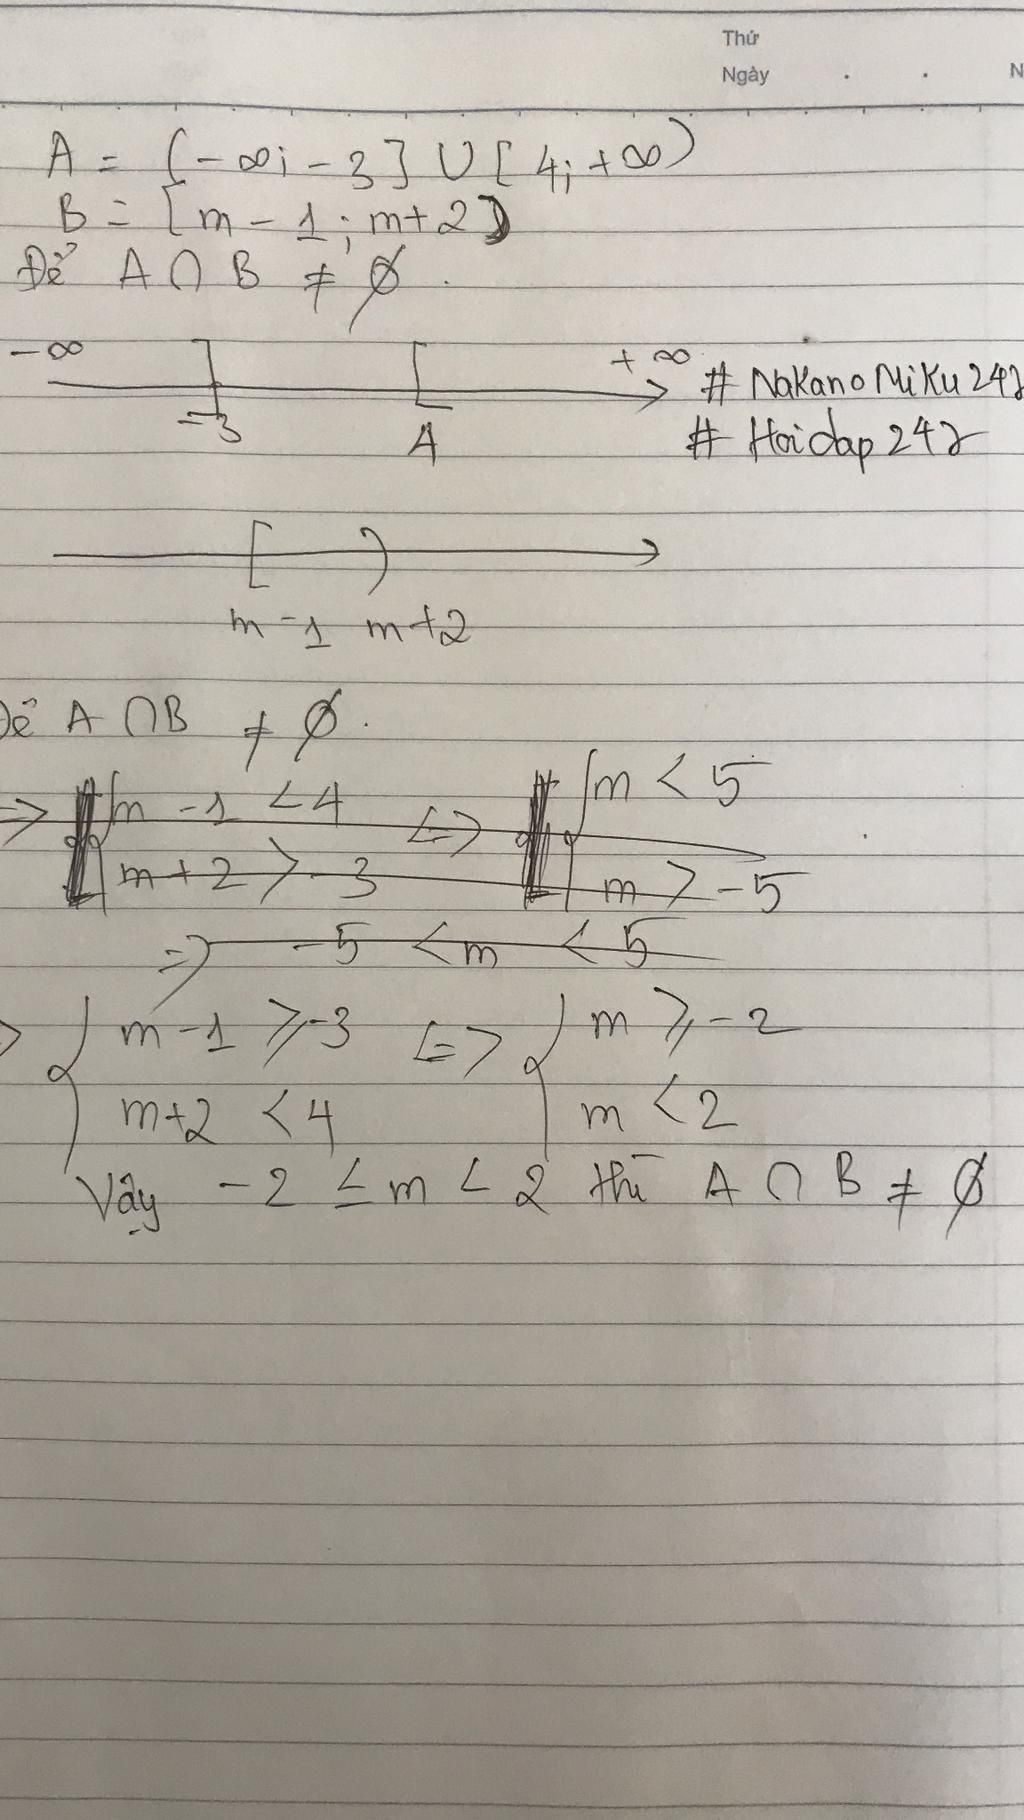 Thứ
Ngày . . N
A = (-∞; -3] ∪ [4; +∞)
B = [m - 1; m+2)
Để A ∩ B ≠ ∅.
-∞ +∞ # NakanoMiKu247
-3 4 # Hoidap247
m-1 m+2
Để A ∩ B ≠ ∅.
=> { m - 1 < 4 <=> { m < 5
m+2 > -3 m > -5
=> -5 < m < 5
> { m - 1 ≥ -3 <=> { m ≥ -2
m+2 < 4 m < 2
Vậy -2 ≤ m < 2 thì A ∩ B ≠ ∅